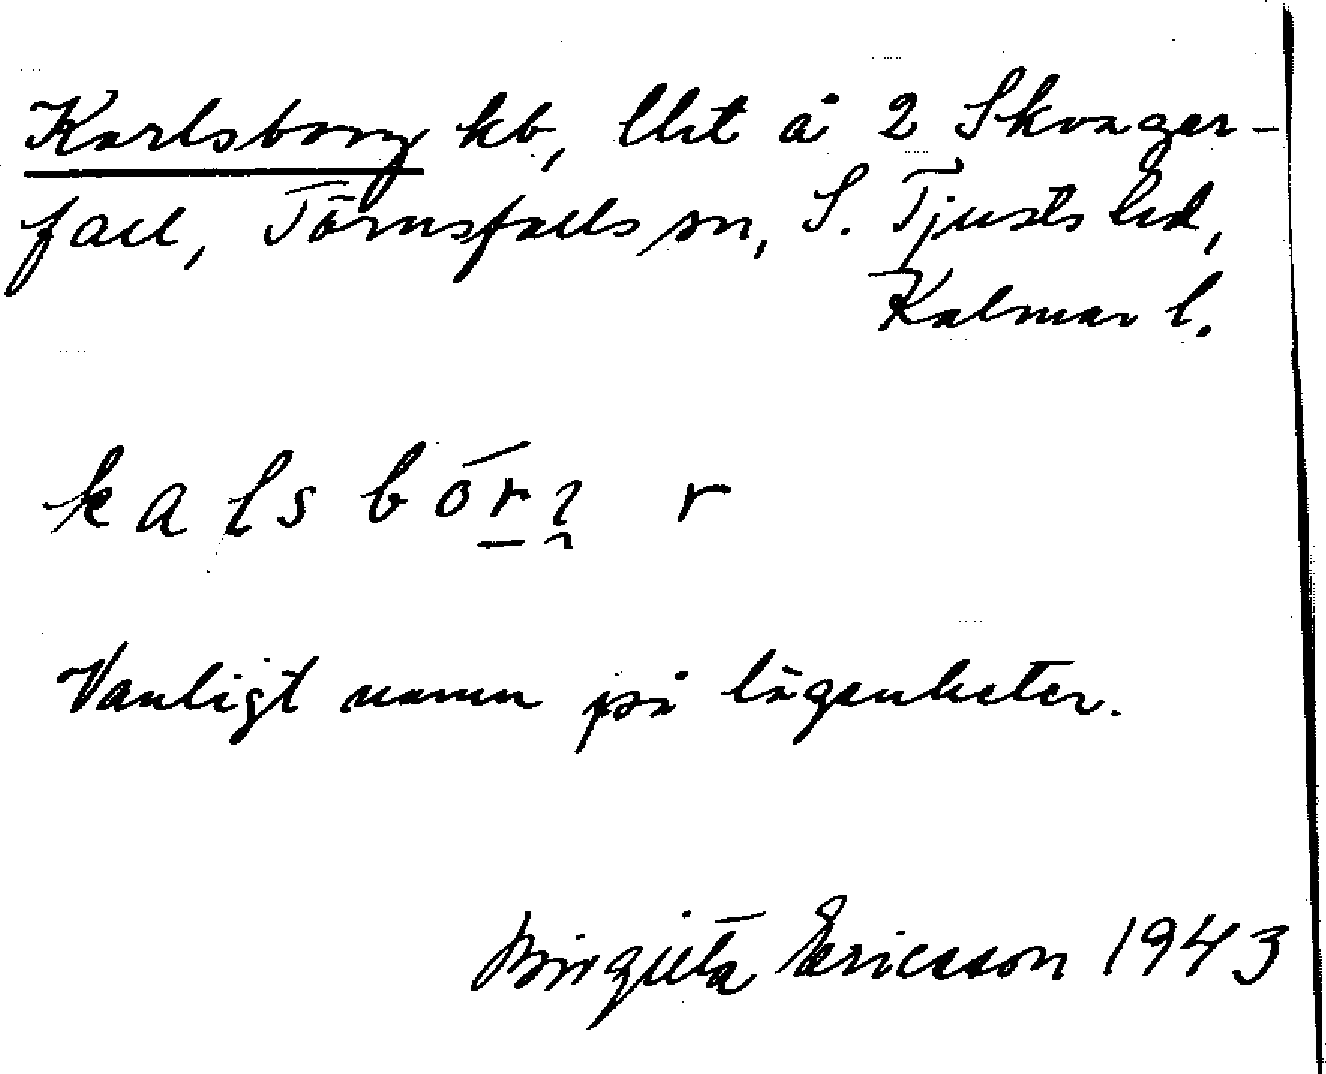 Karlsborg kb, lht å 2 Skvager-
fall, Törnsfalls sn, S. Tjusts hd,
Kalmar l.
kalsbórı̯ r
Vanligt namn på lägenheter.
Birgitta Ericsson 1943